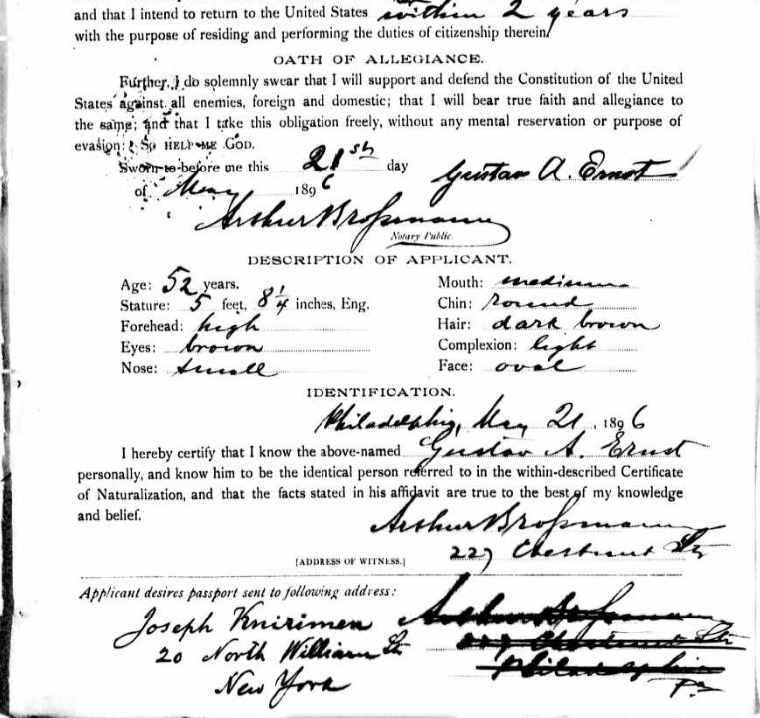 and that I intend to return to the United States within 2 years
with the purpose of residing and performing the duties of citizenship therein.
OATH OF ALLEGIANCE.
Further, I do solemnly swear that I will support and defend the Constitution of the United
States against all enemies, foreign and domestic; that I will bear true faith and allegiance to
the same; and that I take this obligation freely, without any mental reservation or purpose of
evasion: SO HELP ME GOD.
Sworn to before me this 21st day
of May 1896 Gustav A. Ernst
Arthur Broßmann
Notary Public.
DESCRIPTION OF APPLICANT.
Age: 52 years. Mouth: medium
Stature: 5 feet, 8 1/4 inches, Eng. Chin: round
Forehead: high Hair: dark brown
Eyes: brown Complexion: light
Nose: small Face: oval
IDENTIFICATION.
Philadelphia, May 21, 1896
I hereby certify that I know the above-named Gustav A. Ernst
personally, and know him to be the identical person referred to in the within-described Certificate
of Naturalization, and that the facts stated in his affidavit are true to the best of my knowledge
and belief.
Arthur Broßmann
227 Chestnut Str
[ADDRESS OF WITNESS.]
Applicant desires passport sent to following address:
Joseph Knirimen Arthur Broßmann
20 North William Str 227 Chestnut Str
New York Philadelphia
Pa